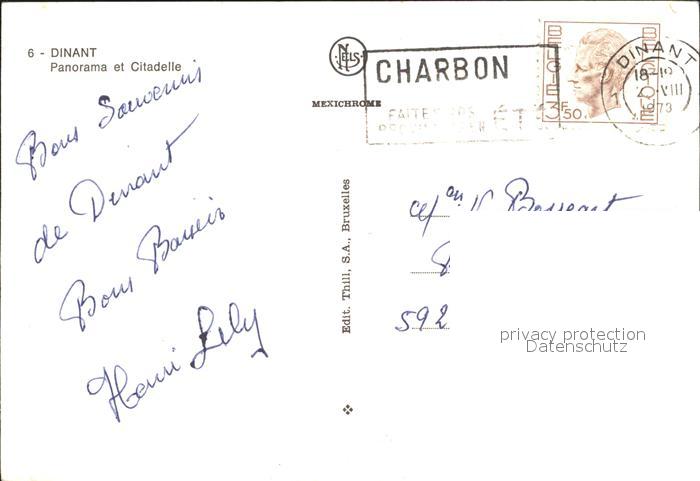 6 - DINANT
Panorama et Citadelle
Bons Souvenirs
de Dinant
Bons Baisers
Henri Lely
NELS
MEXICHROME
Edit. Thill, S.A., Bruxelles
CHARBON
FAITES VOS
ÉTÉ
BELGIE 3F50 BELGIQUE
DINANT
18-19
VIII
1973
592
privacy protection
Datenschutz